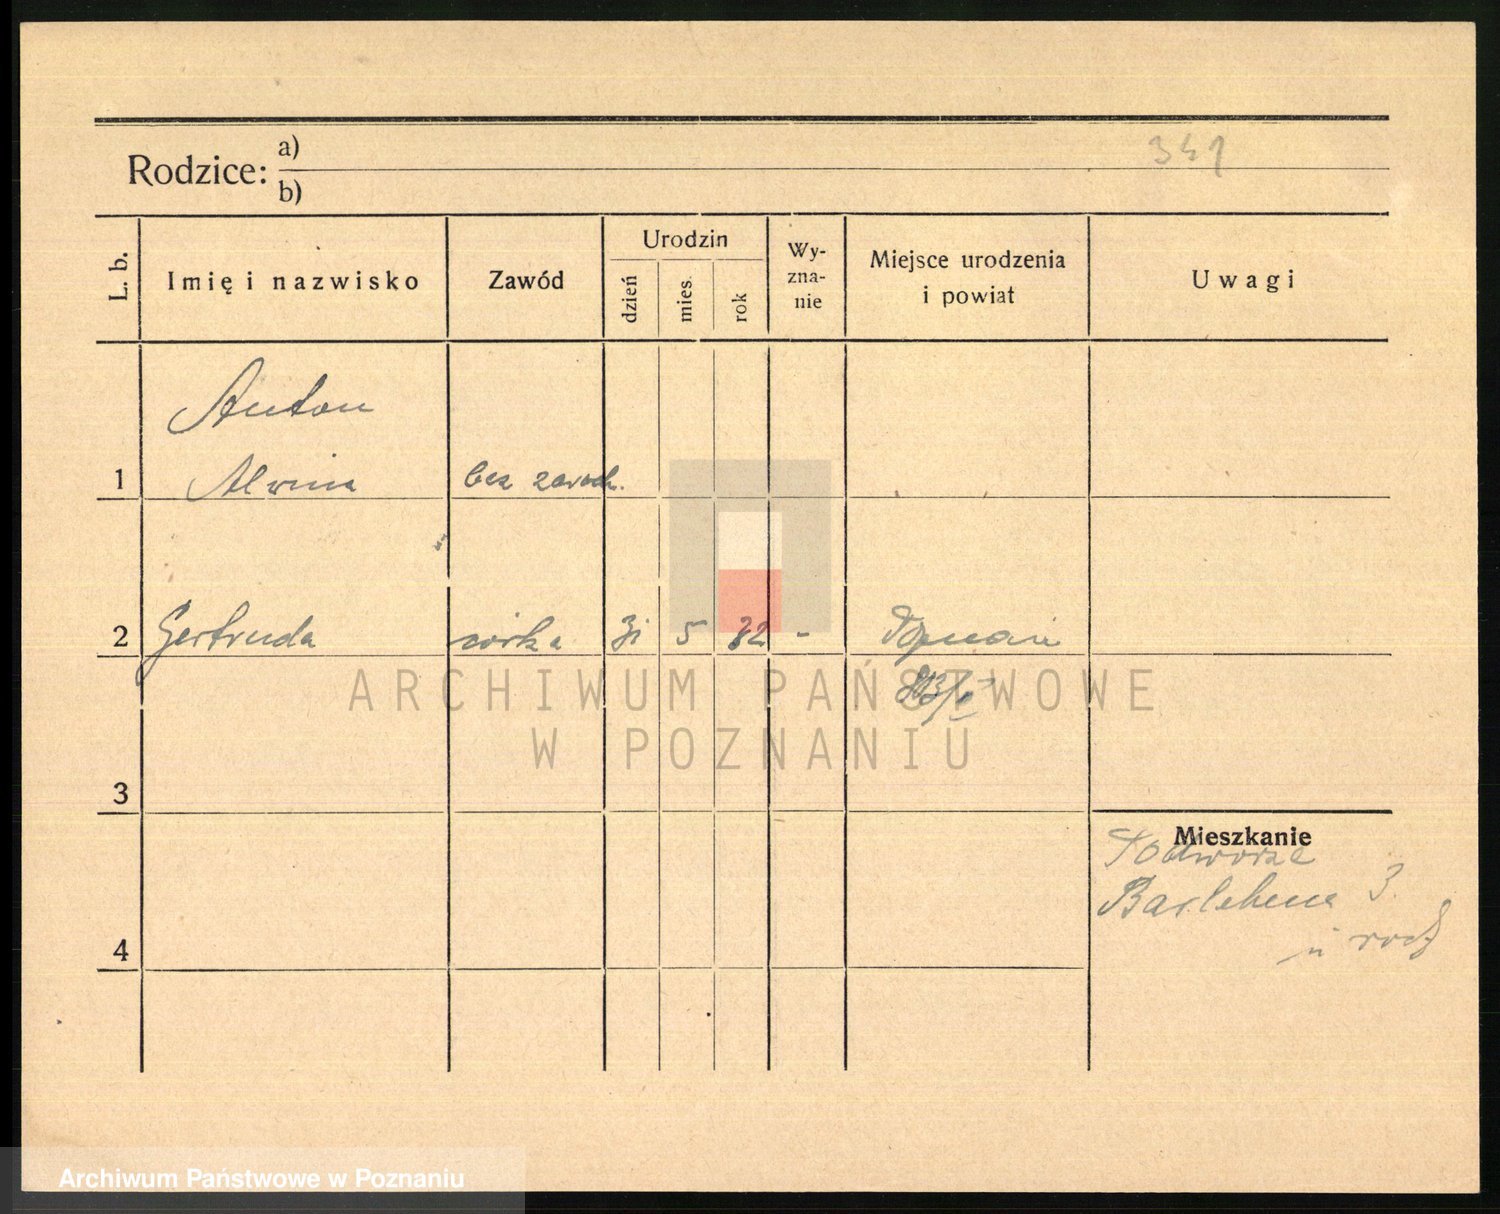 Rodzice: a)
b)
341
L. b.
Imię i nazwisko
Zawód
Urodzin
dzień
mies.
rok
Wy-
zna-
nie
Miejsce urodzenia
i powiat
Uwagi
Anton
1 Alwina bez zawod.
2 Gertruda córka 31 5 32 - Poznań
3
4
Mieszkanie
Podworze
3.
u rodz
ARCHIWUM PAŃSTWOWE
W POZNANIU
Archiwum Państwowe w Poznaniu